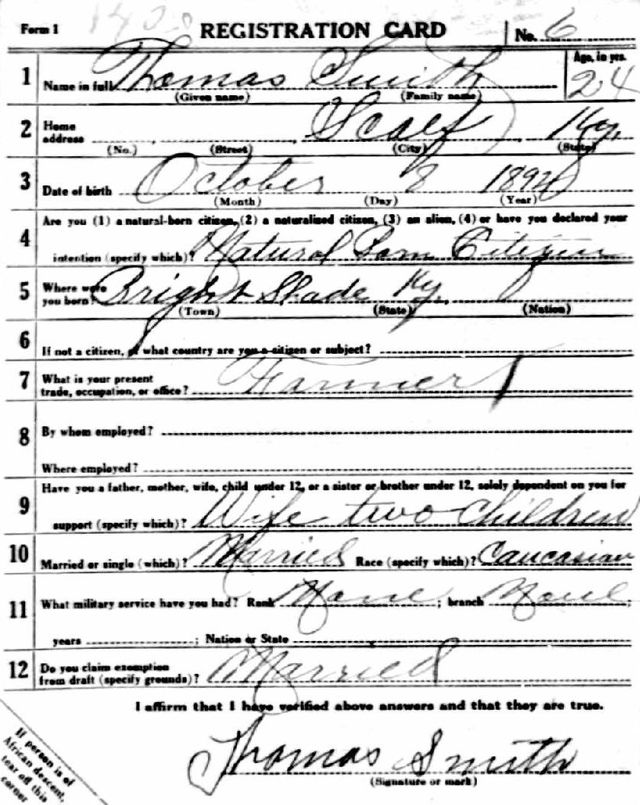 Form 1 REGISTRATION CARD No. 6
1 Name in full Thomas Smith Age, in yrs. 24
(Given name) (Family name)
2 Home address Scalf Ky.
(No.) (Street) (City) (State)
3 Date of birth October 8 1892
(Month) (Day) (Year)
4 Are you (1) a natural-born citizen, (2) a naturalized citizen, (3) an alien, (4) or have you declared your
intention (specify which)? Natural Born Citizen
5 Where were you born? Bright Shade Ky.
(Town) (State) (Nation)
6 If not a citizen, of what country are you a citizen or subject?
7 What is your present trade, occupation, or office? Farmer
8 By whom employed?
Where employed?
9 Have you a father, mother, wife, child under 12, or a sister or brother under 12, solely dependent on you for
support (specify which)? Wife two children
10 Married or single (which)? Married Race (specify which)? Caucasian
11 What military service have you had? Rank None ; branch None ;
years ; Nation or State
12 Do you claim exemption from draft (specify grounds)? Married
I affirm that I have verified above answers and that they are true.
Thomas Smith
(Signature or mark)
If person is of
African descent,
tear off this
corner